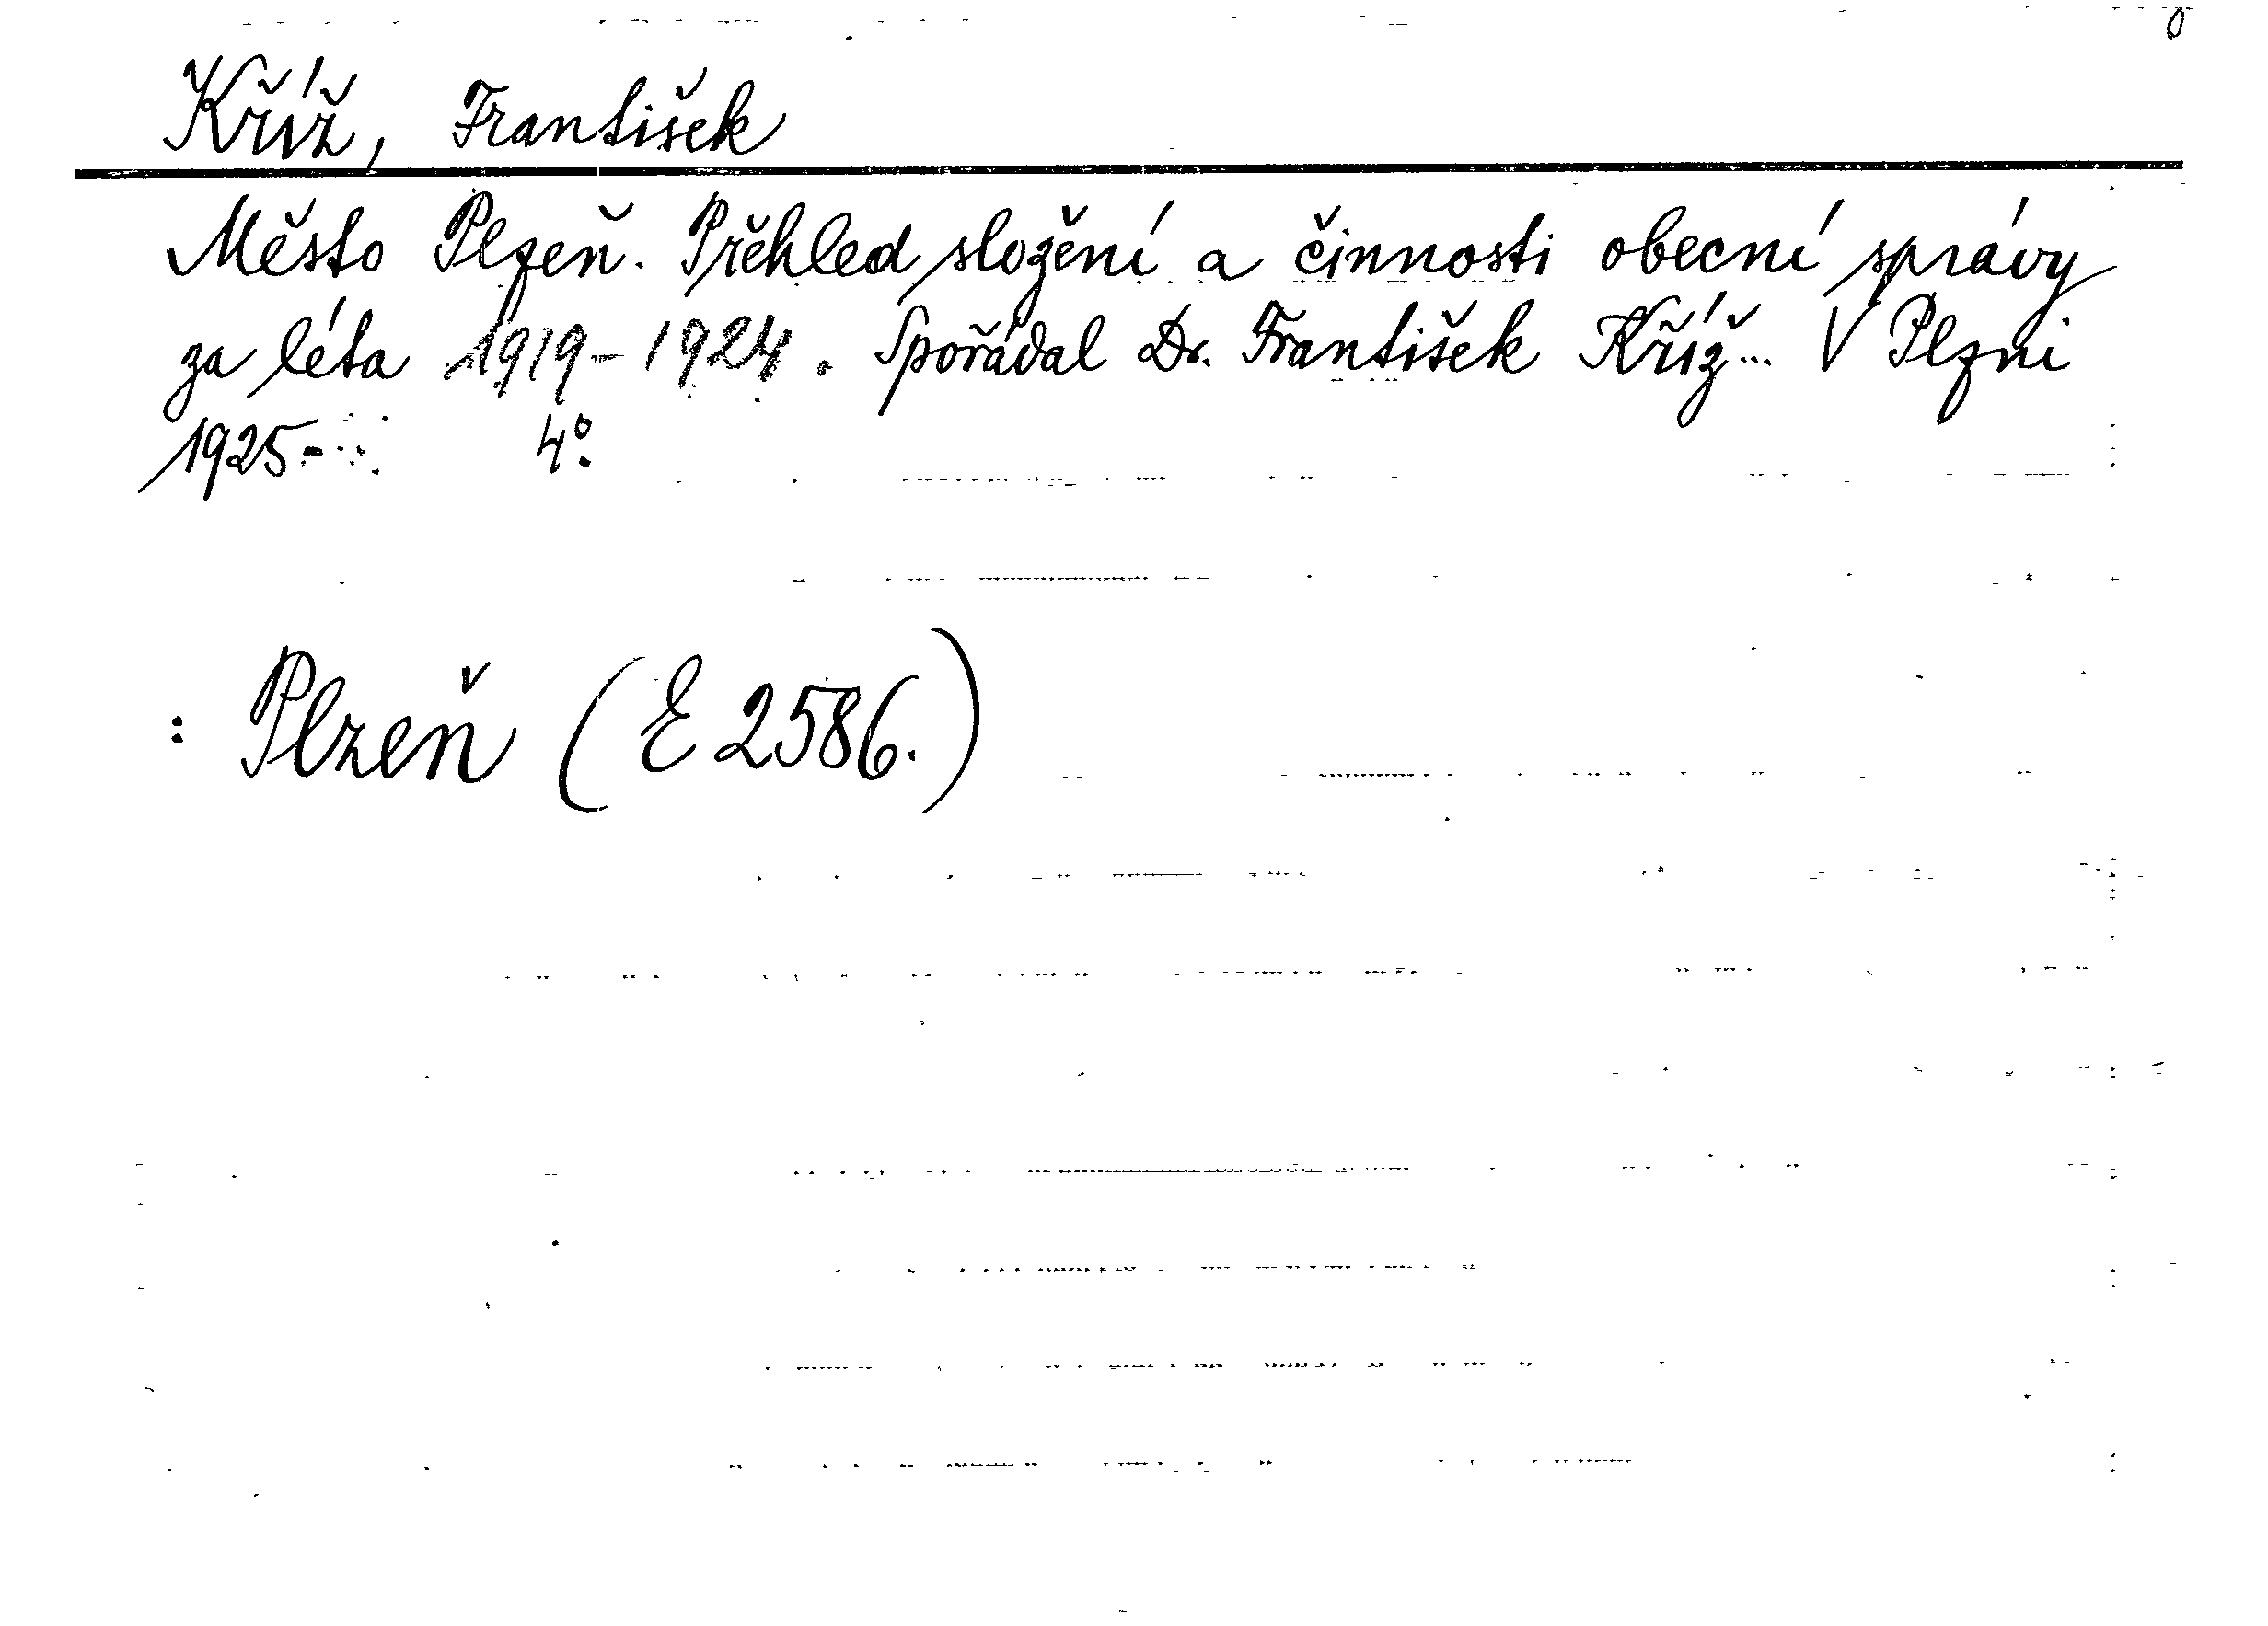 Kříž, František
Město Plzeň. Přěhled složení a činnosti obecní správy
za léta 1919-1924. Spořádal Dr. František Kříž... V Plzni
1925- 4°.
: Plzeň (E 2586.)